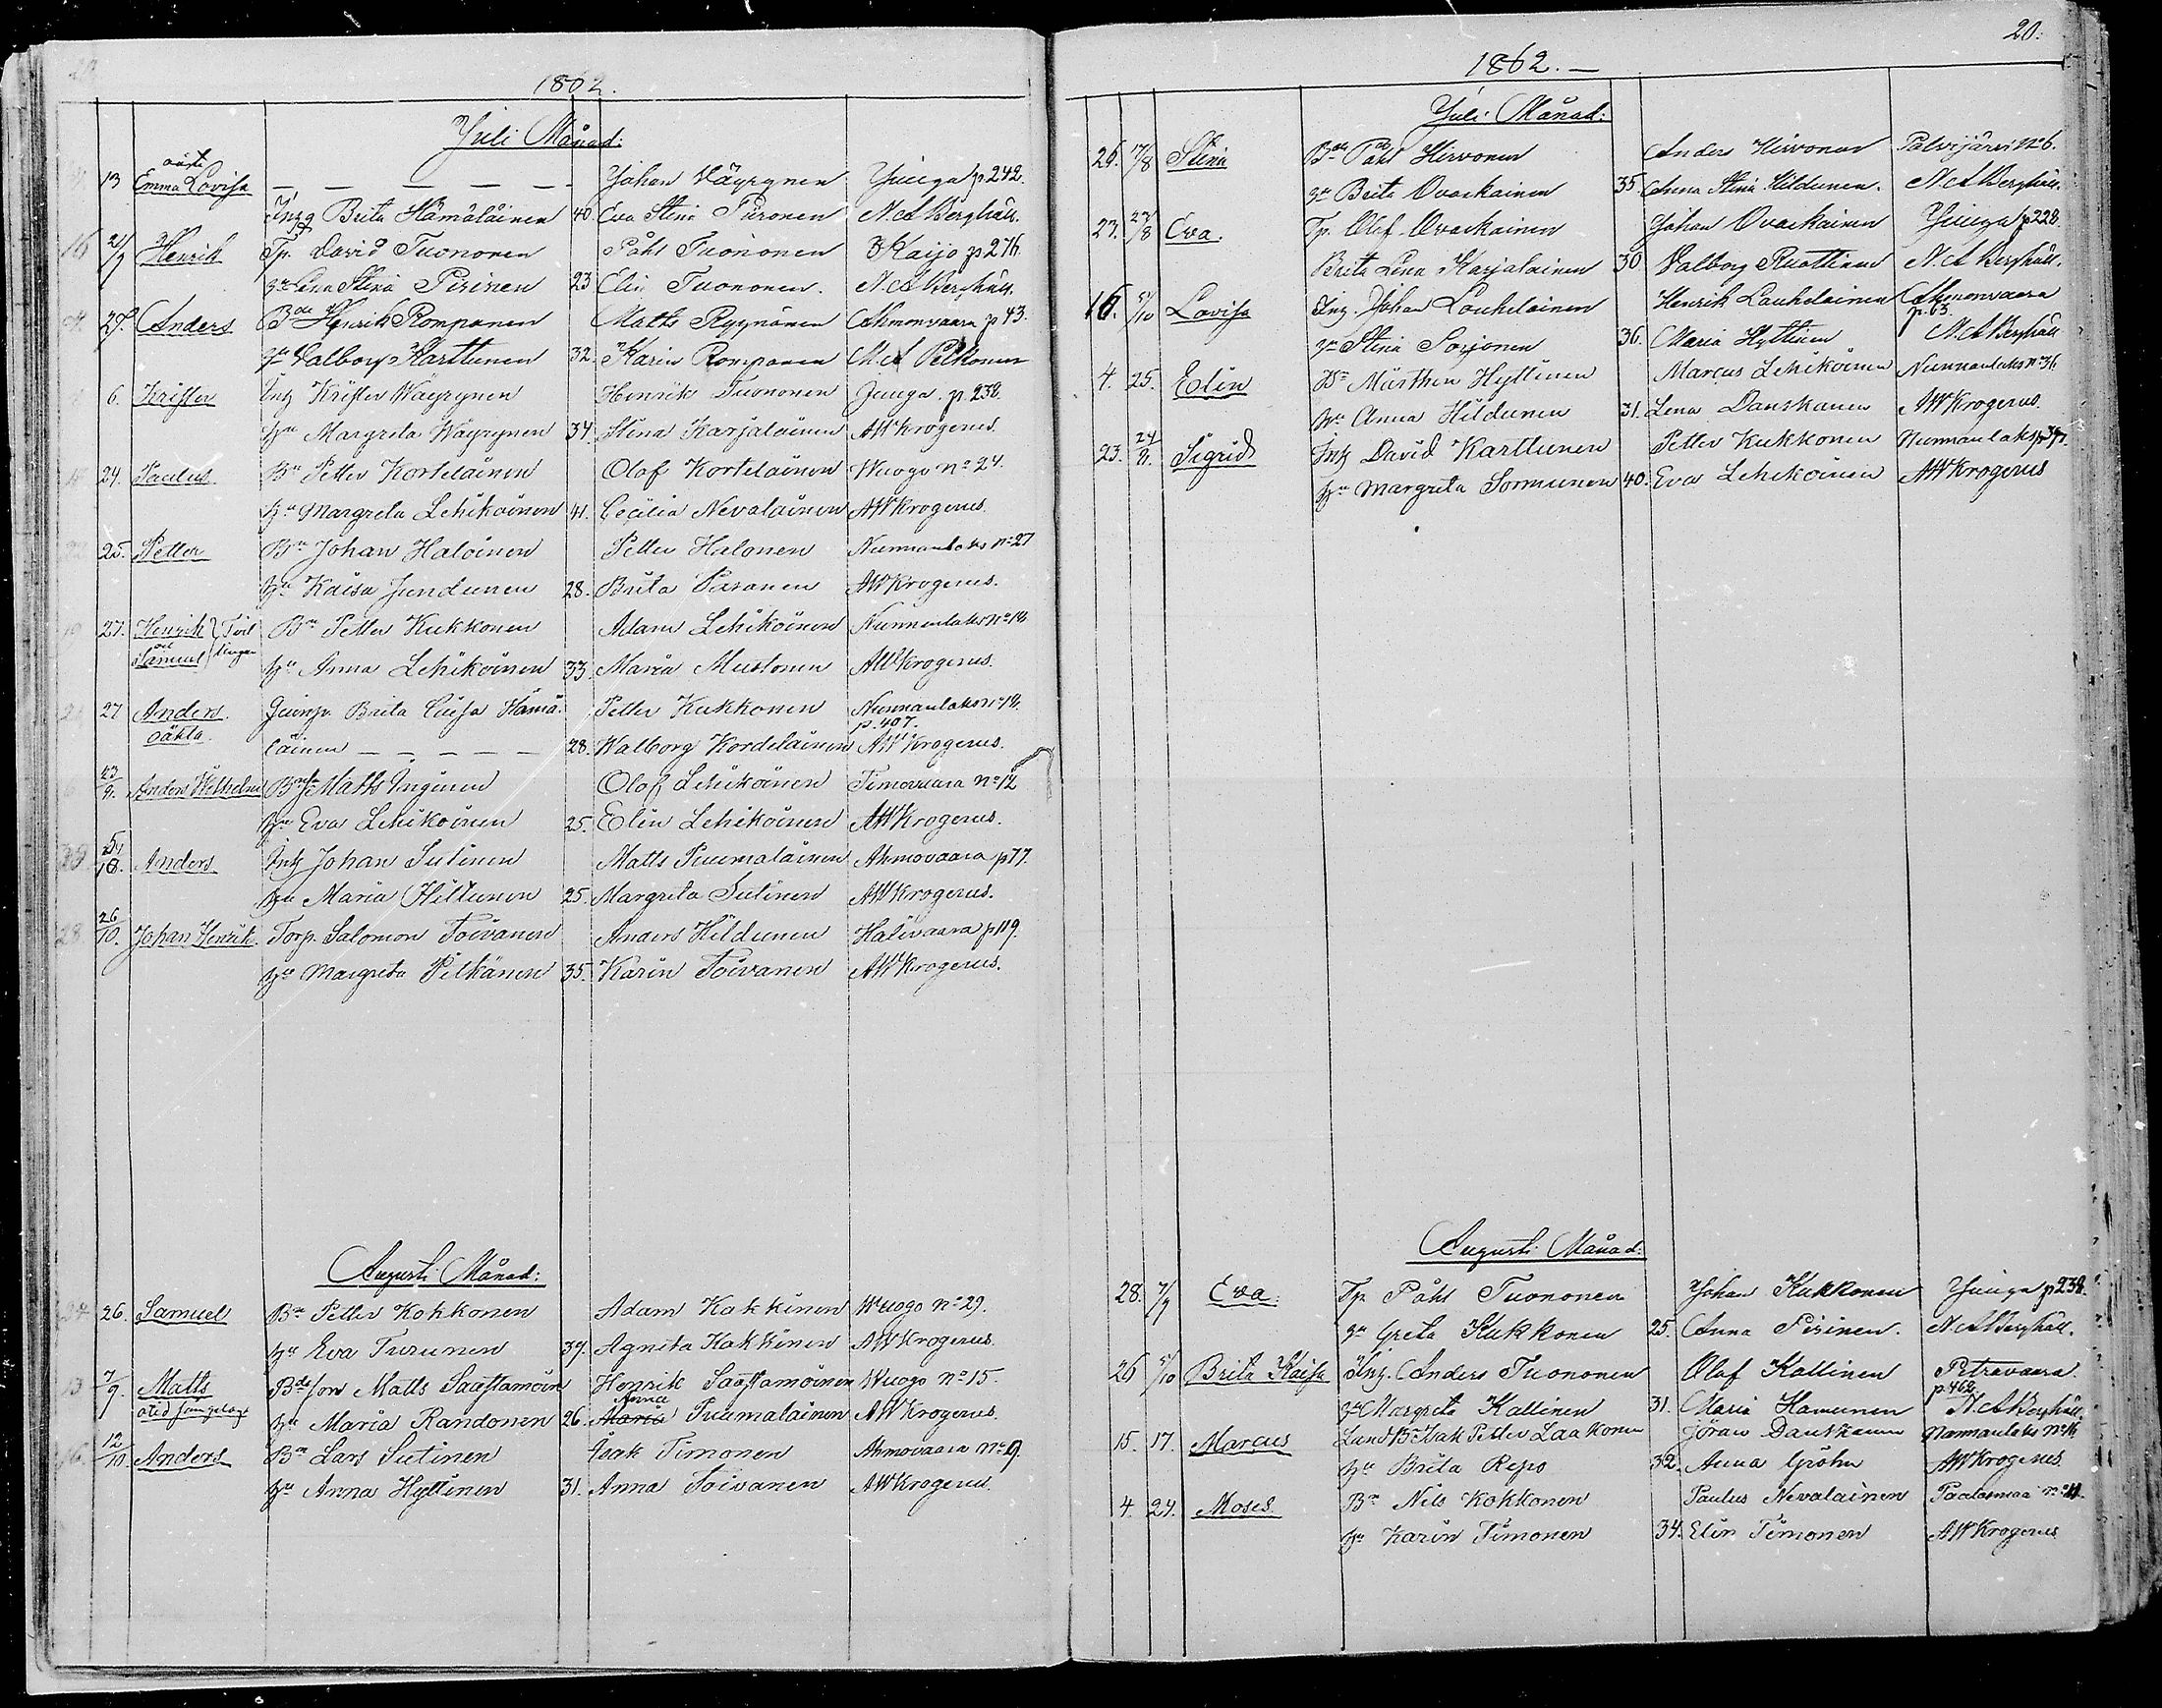 1862.
Juli Månad:
13 Emma Lovisa — — — — — Johan Väyrynen Juuga p. 242.
oäkta
Inhg Brita Hämäläinen 40. Eva Stina Piironen N. A Berghäll.
16 21/7 Henrik Tp. David Tuononen Påhl Tuononen Kaijo p 276.
hu Lena Stina Pirinen 23 Elin Tuononen. N. A Berghäll.
27. Anders Bde Henrik Romppanen Matts Ryynänen Ahmonvaara p 43.
hu Valborg Karttunen 32. Karin Romppanen M. A Pelkonen
6. Krister Inh Krister Wäyrynen Henrik Tuononen Juuga. p. 238.
hu Margreta Wäyrynen 34. Stina Karjalainen AWKrogerus.
24. Paulus Bn Petter Kortelainen Olof Kortelainen Wuogo no 24.
hu Margreta Lehikoinen 41. Cecilia Nevalainen AWKrogerus.
25. Petter Bn Johan Haloinen Petter Halonen Nunnanlaks no 27
hu Kaisa Jundunen 28. Brita Turanen AWKrogerus.
27. Henrik Tvil Bn Petter Kukkonen Adam Lehikoinen Nunnanlaks no 18
och Samuel lingar hu Anna Lehikoinen 33. Maria Mustonen AWKrogerus.
27 Anders Qvinsp. Brita Cajsa Hämä- Petter Kukkonen Nunnanlaks no 18.
p. 407.
oäkta. läinen — — — — — 28. Walborg Kordelainen AWKrogerus.
23/9. Anders Wilhelm Bn Matts Inginen Olof Lehikoinen Timovaara no 12
hu Eva Lehikoinen 25. Elin Lehikoinen AWKrogerus.
5/10. Anders Inh Johan Sutinen Matts Puumalainen Ahmovaara p 77.
hu Maria Hiltunen 25. Margreta Sutinen AWKrogerus.
28 26/10. Johan Henrik Torp. Salomon Toivanen Anders Hildunen Halivaara p 119.
hu Margreta Pitkänen 35. Karin Toivanen AWKrogerus.
Augusti Månad:
26. Samuel Bn Petter Kokkonen Adam Kakkinen Wuogo no 29.
hu Eva Turunen 39. Agneta Kakkinen AWKrogerus.
13 7/9. Matts Bde son Matts Saastamoin Henrik Saastamoinen Wuogo no 15.
Anna
hu Maria Randonen 26. Maria Puumalainen AWKrogerus.
16. 12/10. Anders Bn Lars Sutinen Isak Timonen Ahmovaara no 19.
hu Anna Hyttinen 31. Anna Toivanen AWKrogerus.
20.
1862. —
Juli Månad:
26. 7/8 Stina Bde Påhl Hirvonen Anders Hirvonen Polvijärvi No 6.
hu Brita Ovaskainen 35. Anna Stina Hildunen. N A Berghäll.
27. 27/8 Eva. Tp. Olof Ovaskainen Johan Ovaskainen Juuga p 228.
Brita Lena Karjalainen 30. Valborg Ruottinen N. A Berghäll.
16. 5/10 Lovisa Inh. Johan Louhelainen Henrik Louhelainen Ahmonvaara
p. 63.
hu Stina Sorjonen 36. Maria Hyttinen N. A Berghäll
4. 25. Elin Bn Mårthen Hyttinen Marcus Lehikoinen Nunnanlaks no 36.
hu Anna Hildunen 31. Lena Danskanen AWKrogerus.
23. 24/9. Sigrid Inh David Karttunen Petter Kukkonen Nunnanlaks
hu Margreta Sormunen 40. Eva Lehikoinen AWKrogerus
Augusti Månad:
28. 7/9 Eva. Tp. Påhl Tuononen Johan Kukkonen Juuga p 238.
hu Greta Kukkonen 25. Anna Pirinen. N. A Berghäll.
26 5/10 Brita Kaisa Inh. Anders Tuononen Olof Kallinen Petravaara.
p. 462
hu Margreta Kallinen 31. Maria Hamunen N. A Berghäll.
15. 17. Marcus Land Bn Isak Petter Laakonen Jöran Danskanen Nunnanlaks no 16
hu Brita Repo 32. Anna Gröhn AWKrogerus
4. 24. Moses. Bn Nils Kokkonen Paulus Nevalainen Paalasmaa no 11.
hu Karin Timonen 34. Elin Timonen AWKrogerus